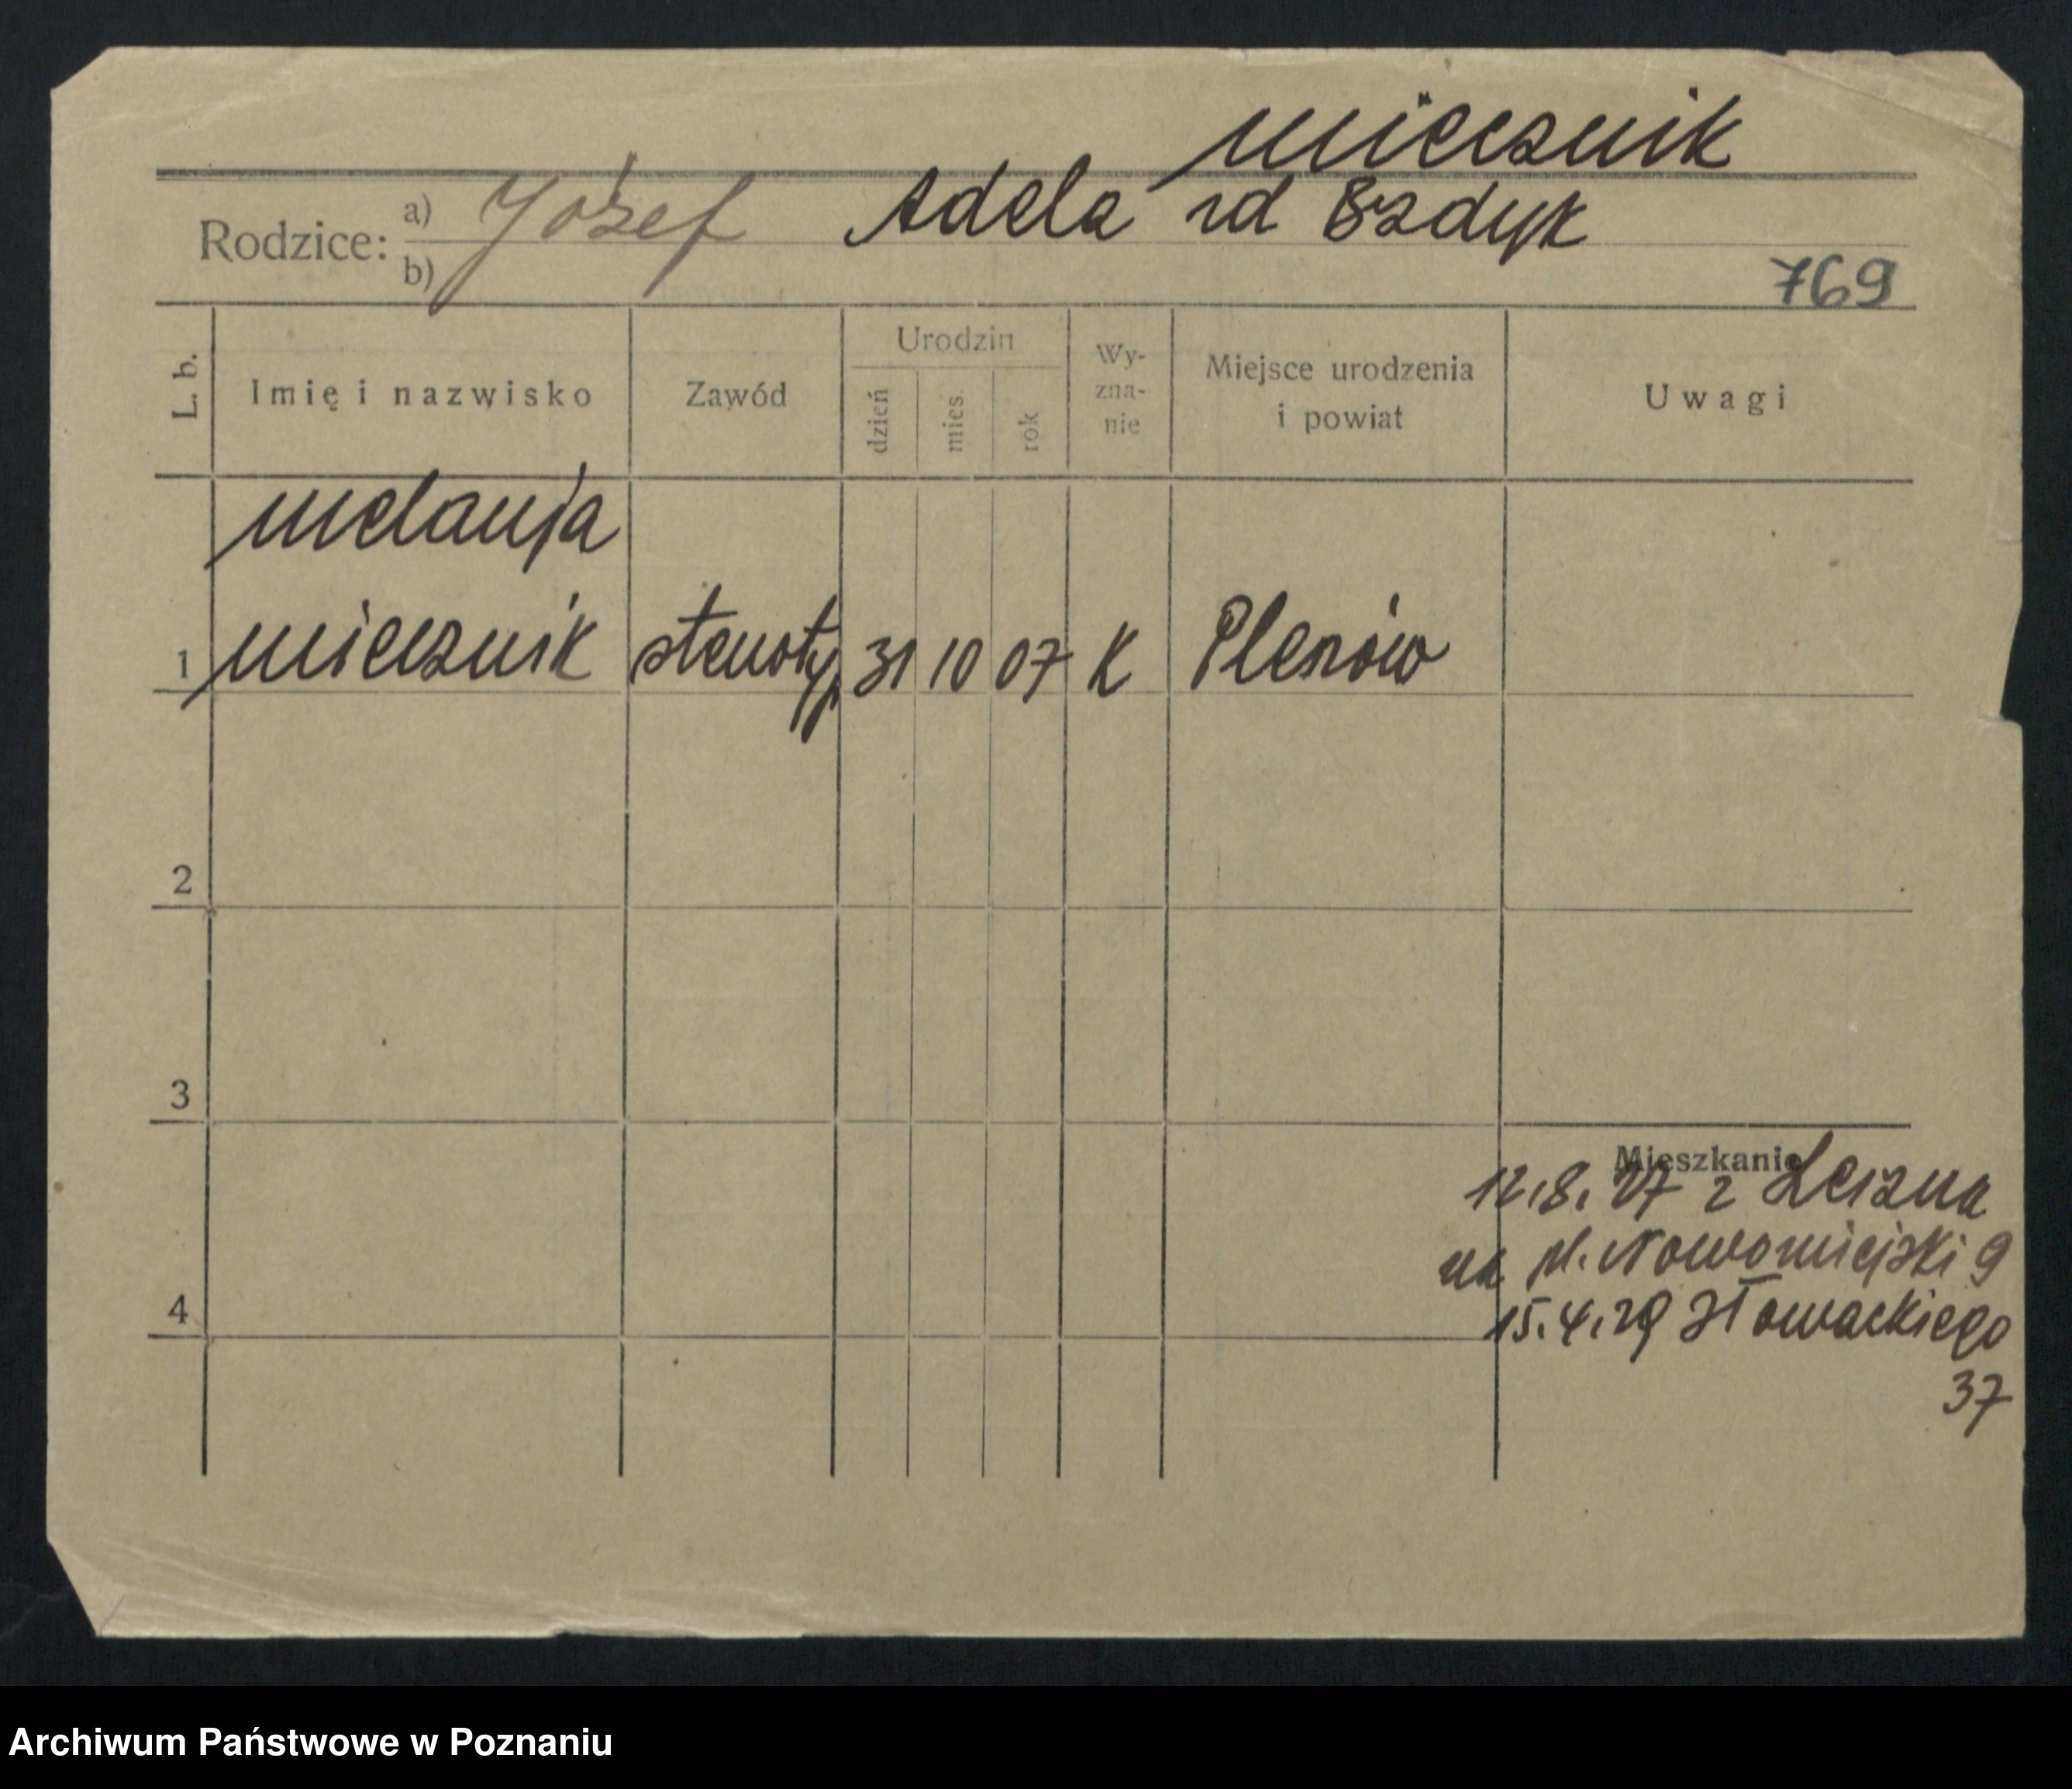 Miecznik
Rodzice: a) Józef Adela zd Bzdyk
b)
769
L. b. Imię i nazwisko Zawód Urodzin dzień mies. rok Wy-zna-nie Miejsce urodzenia i powiat Uwagi
Melanja
1 Miecznik stenotyp. 31 10 07 K
2
3
Mieszkanie
12.8.27 z Leszna
na pl. Nowomiejski 9
4 15.4.29 Słowackiego
37
Archiwum Państwowe w Poznaniu